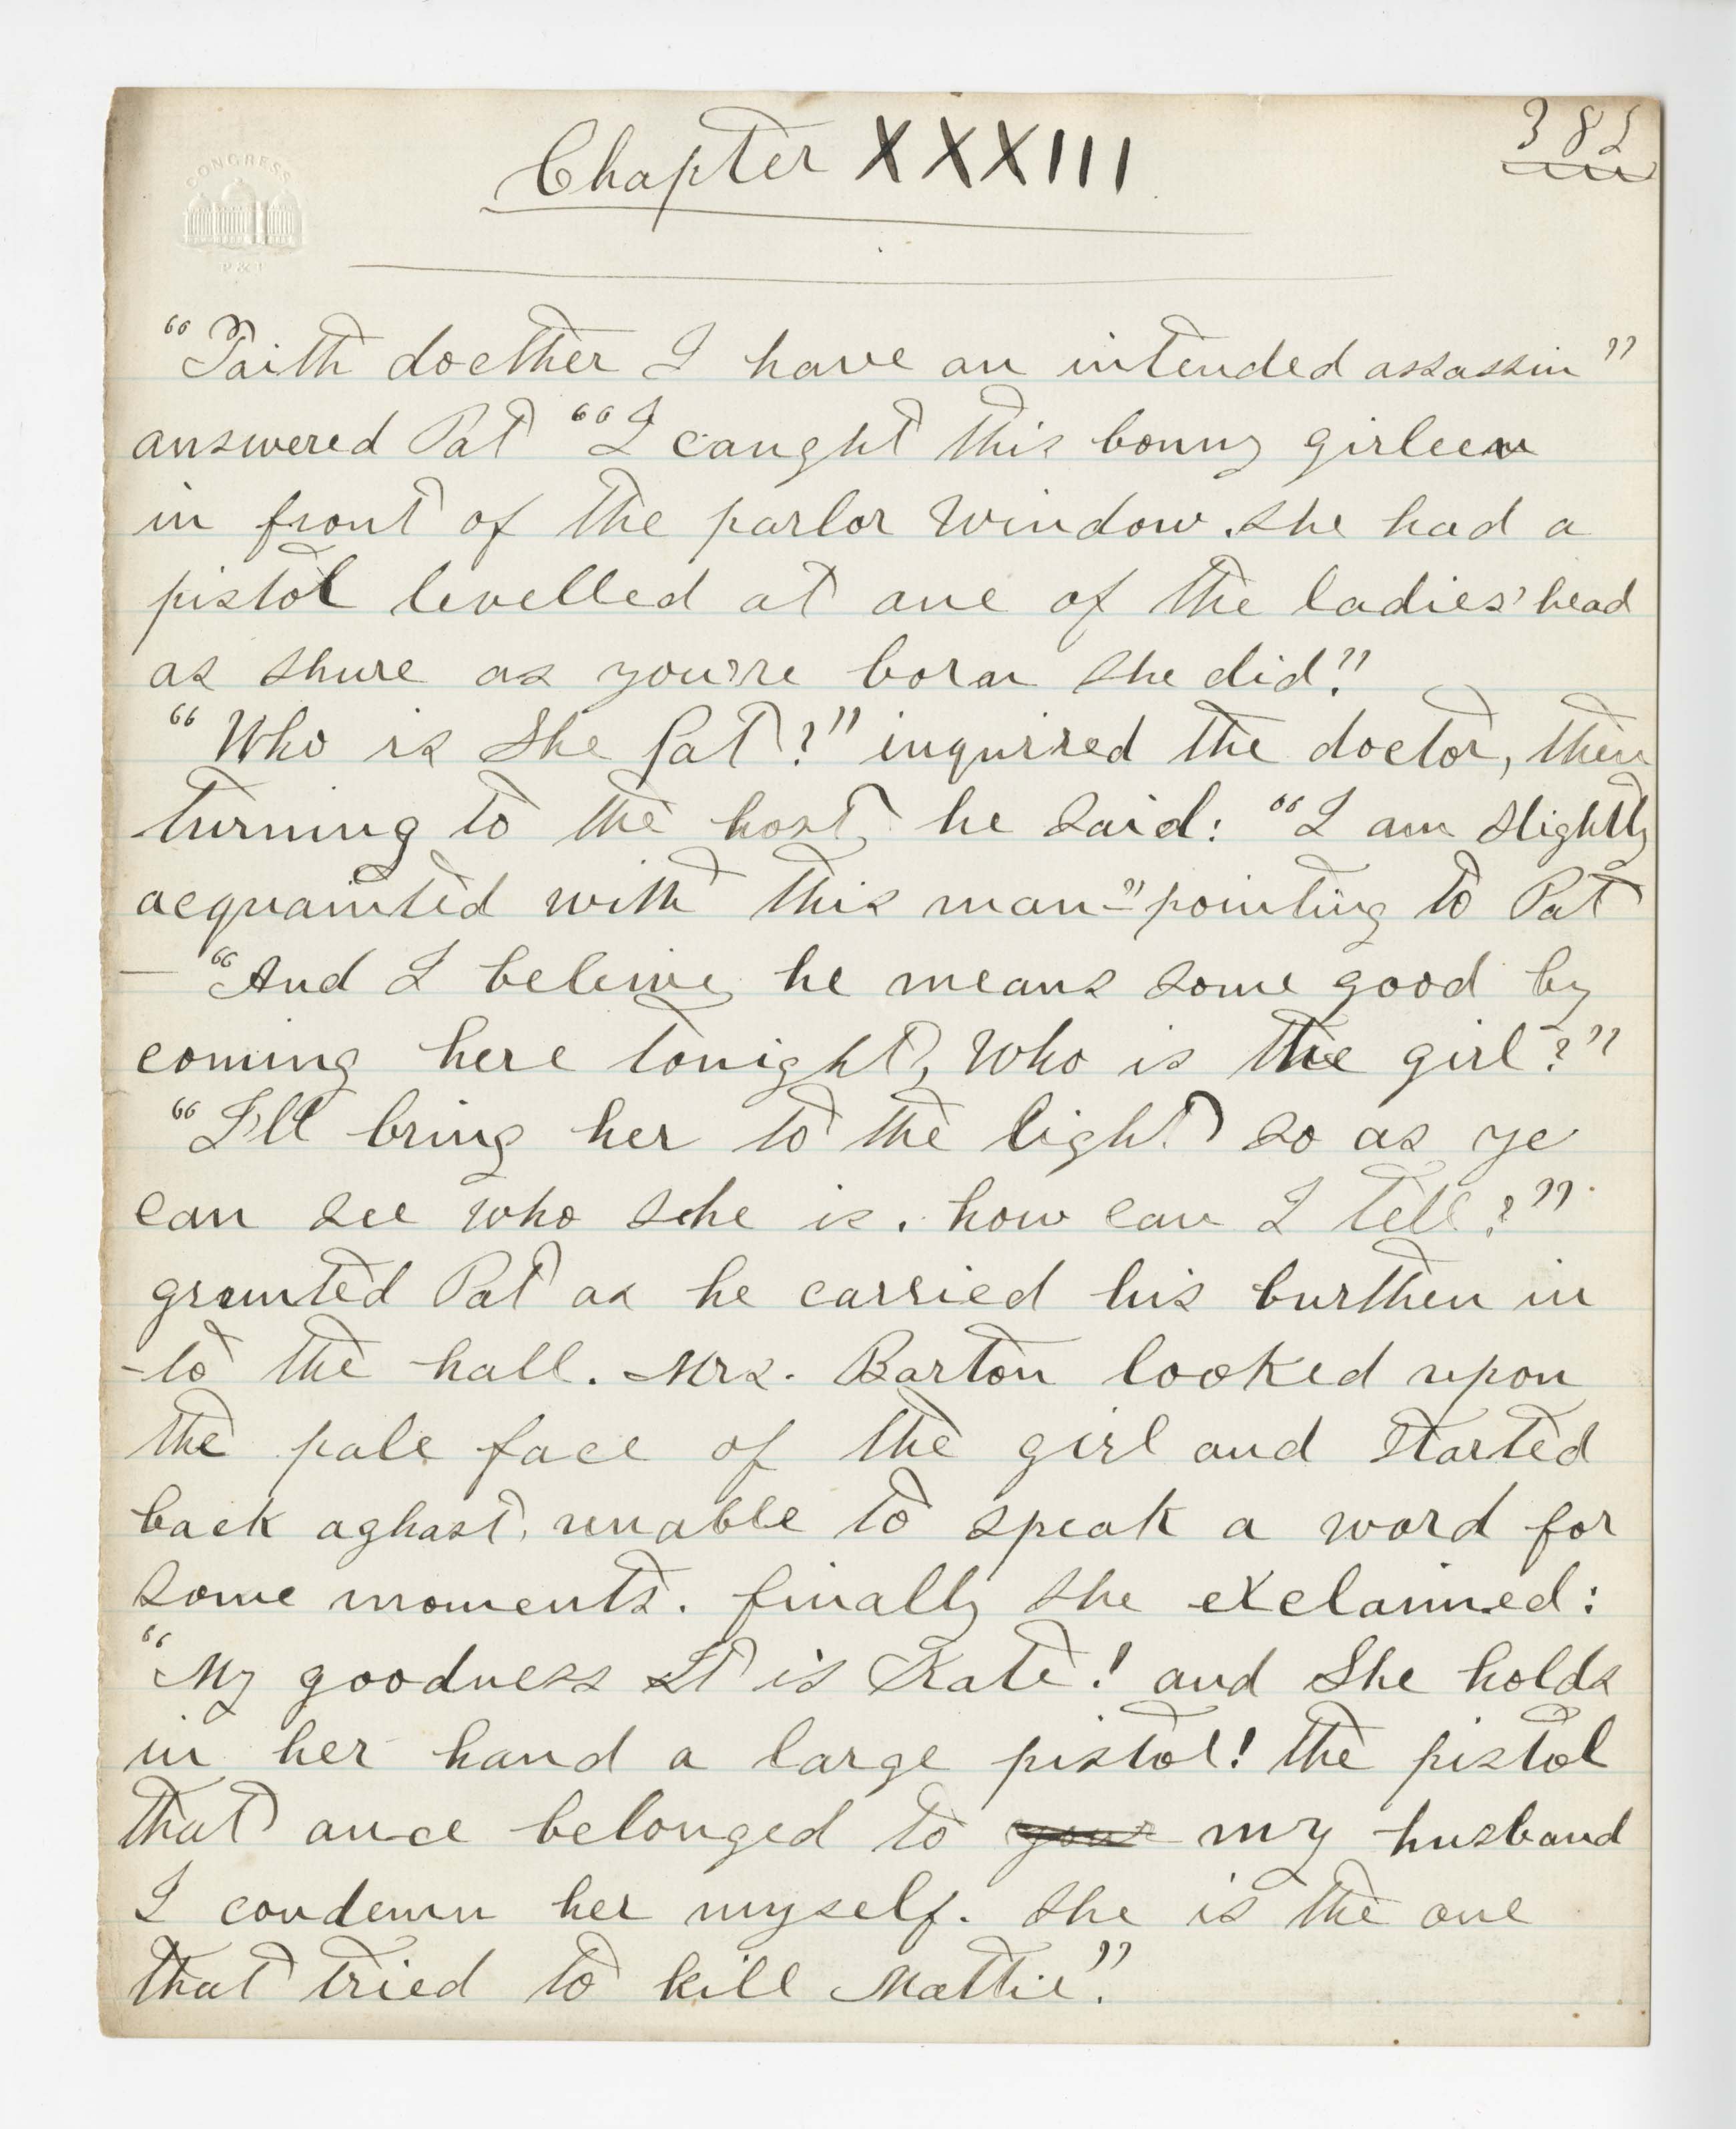 CONGRESS
P & P
Chapter XXXIII
385
"Faith docther I have an intended assassin"
answered Pat "I caught this bonny girleen
in front of the parlor window. she had a
pistol levelled at one of the ladies' head
as shure as you're born she did."
"Who is She Pat?" inquired the doctor, then
turning to the host, he said: "I am slightly
acquainted with this man—" pointing to Pat
— "And I beleive he means some good by
coming here tonight, Who is the girl?"
"I'll bring her to the light so as ye
can see who sche is. how can I tell?"
grunted Pat as he carried his burthen in
-to the hall. Mrs. Barton looked upon
the pale face of the girl and started
back aghast, unable to speak a word for
some moments. finally she exclaimed:
"My goodness It is Kate! and She holds
in her hand a large pistol! the pistol
that once belonged to your my husband
I condemn her myself. she is the one
that tried to kill Mattie".